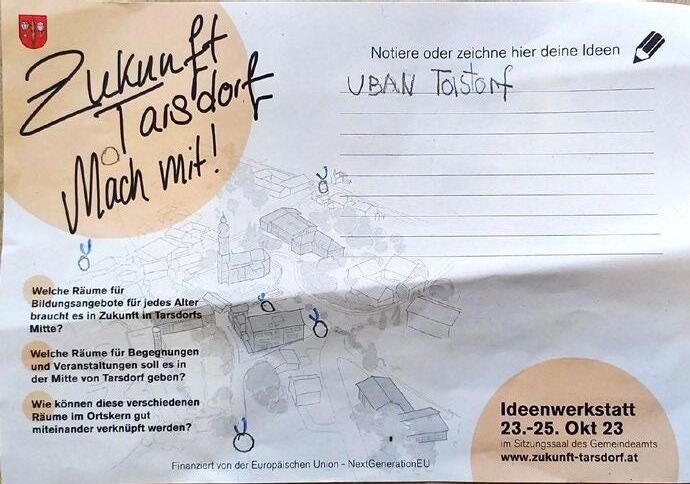 Zukunft
Tarsdorf
Mach mit!
Notiere oder zeichne hier deine Ideen
UBAN Torstorf
Welche Räume für
Bildungsangebote für jedes Alter
braucht es in Zukunft in Tarsdorfs
Mitte?
Welche Räume für Begegnungen
und Veranstaltungen soll es in
der Mitte von Tarsdorf geben?
Wie können diese verschiedenen
Räume im Ortskern gut
miteinander verknüpft werden?
Finanziert von der Europäischen Union - NextGenerationEU
Ideenwerkstatt
23.-25. Okt 23
im Sitzungssaal des Gemeindeamts
www.zukunft-tarsdorf.at